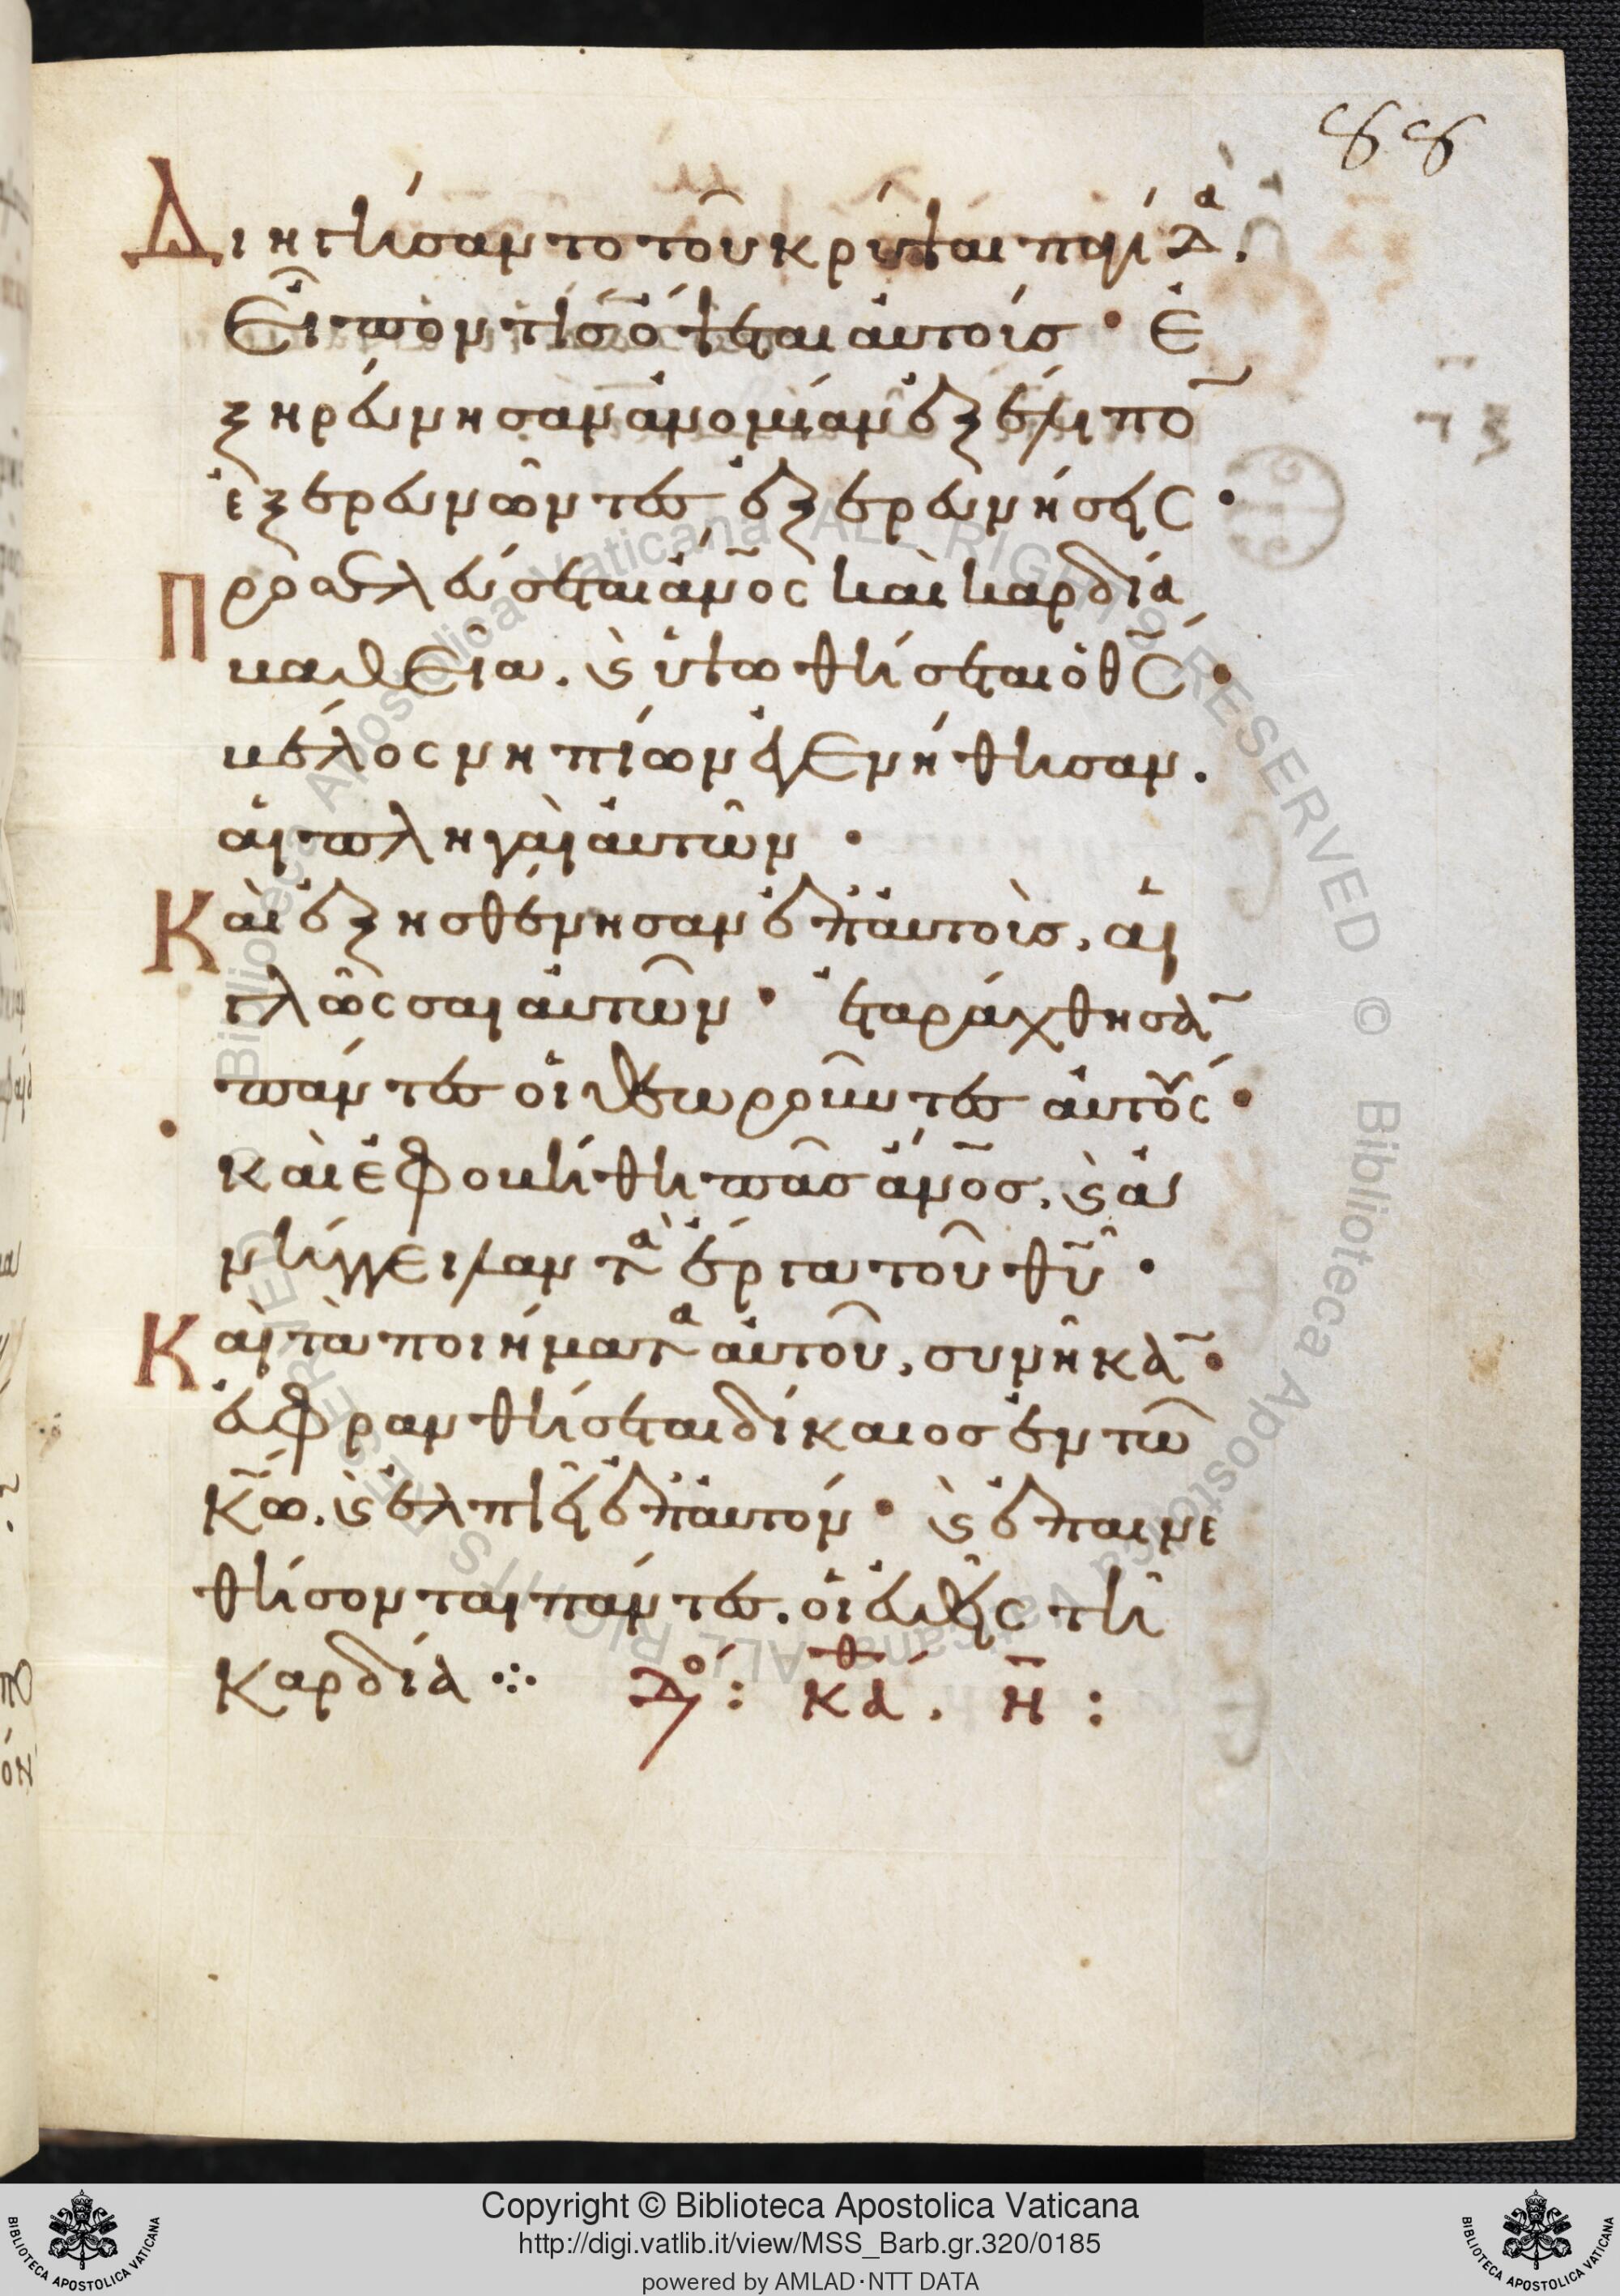 88
Διηγήσαντο τοῦ κρύψαι παγίδα.
Εἶπον τίς ὄψεται αὐτοίσ · Ἐ
ξηρεύνησαν ἀνομίαν ἐξέλιπο̅
ἐξερευνῶντες ἐξερευνήσεις ·
Προσελεύσεται ἄν̅ος καὶ καρδία
βαθεῖα. ϗ ὑψωθήσεται ὁ θ̅ς ·
βέλος νηπίων ἐγενήθησαν.
αἱ πληγαὶ αὐτῶν ·
Καὶ ἐξησθένησαν ἐπ' αὐτοὺσ, αἱ
γλῶσσαι αὐτῶν · ἐταράχθησα̅
πάντες οἱ θεωροῦντες αὐτούς ·
καὶ ἐφοβήθη πᾶσ ἄν̅οσ, ϗ ἀ
νήγγειλαν τὰ ἔργα τοῦ θ̅υ ·
Καὶ τὰ ποιήματα αὐτοῦ, συνῆκα̅ ·
εὐφρανθήσεται δίκαιοσ ἐν τῶ
κ̅ω. ϗ ἐλπιεῖ ἐπ' αὐτόν · ϗ ἐπαινε
θήσονται πάντες. οἱ εὐθεῖς τῆ
καρδία ⁘ Δό : κάθ . η̅ :
Copyright © Biblioteca Apostolica Vaticana
http://digi.vatlib.it/view/MSS_Barb.gr.320/0185
powered by AMLAD·NTT DATA